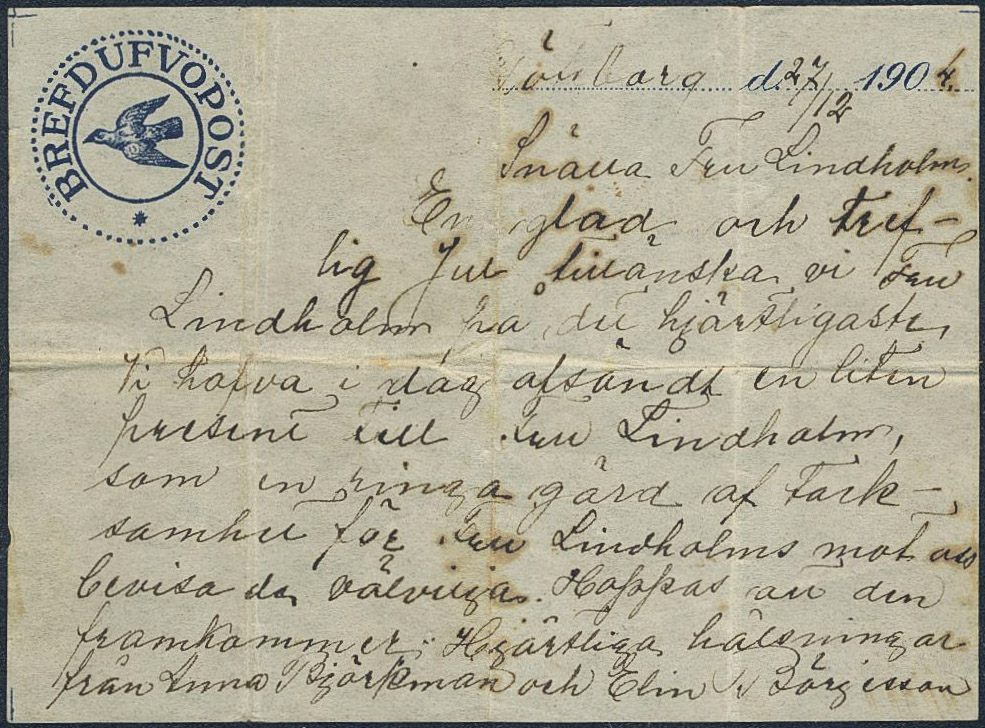 BREFDUFVOPOST
Göteborg d. 27/12 1904.
Snälla Fru Lindholm.
En glad och tref-
lig Jul tillönska vi Fru
Lindholm på det hjärtligaste,
Vi hafva i dag afsändt en liten
present till Fru Lindholm,
som en ringa gärd af tack-
samhet för Fru Lindholms mot oss
bevisade välvilja. Hoppas att den
framkommer. Hjärtliga hälsningar
från Anna Björkman och Elin Börjesson